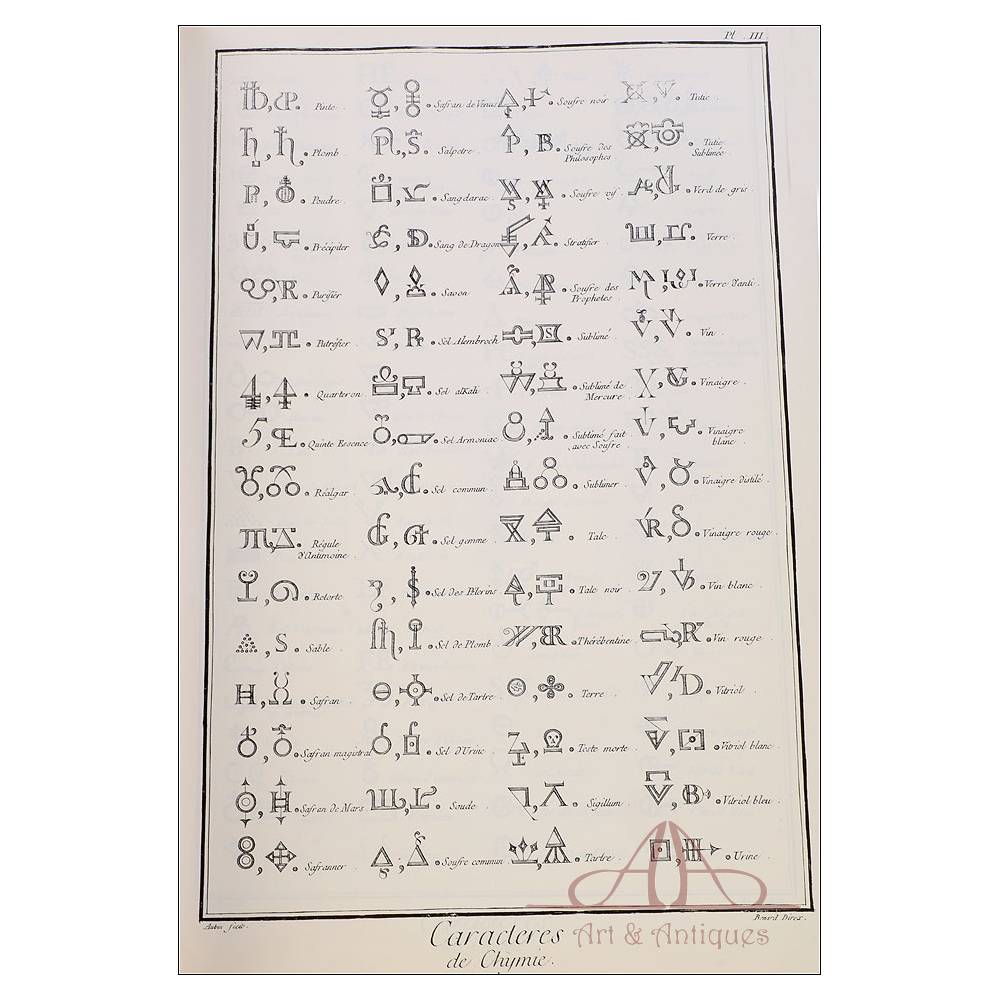 Pl. III
Pinte. Safran de Venus Soufre noir. Tutie.
Plomb. Salpetre. Soufre des Philosophes Tutie Sublimée
Poudre. Sangdarac. Soufre vif. Verd de gris.
Précipiter Sang de Dragon Stratifier Verre.
Purifier Savon Soufre des Prophetes. Verre d'anti.
Putréfier Sel Alembroch Sublimé. Vin.
Quarteron Sel alkali Sublimé de Mercure. Vinaigre.
Quinte Essence Sel Armoniac Sublimé fait avec Soufre Vinaigre blanc.
Réalgar Sel commun. Sublimer. Vinaigre distilé.
Régule d'Antimoine. Sel gemme. Talc. Vinaigre rouge.
Retorte Sel des Pelerins Talc noir. Vin blanc.
Sable. Sel de Plomb. Thérébentine. Vin rouge.
Safran. Sel de Tartre. Terre. Vitriol.
Safran magistral Sel d'Urine Teste morte. Vitriol blanc.
Safran de Mars Soude. Sigillum. Vitriol bleu.
Safranner Soufre commun. Tartre. Urine.
Aubin fecit. Benard Direx.
Caracteres
de Chymie.
Art & Antiques